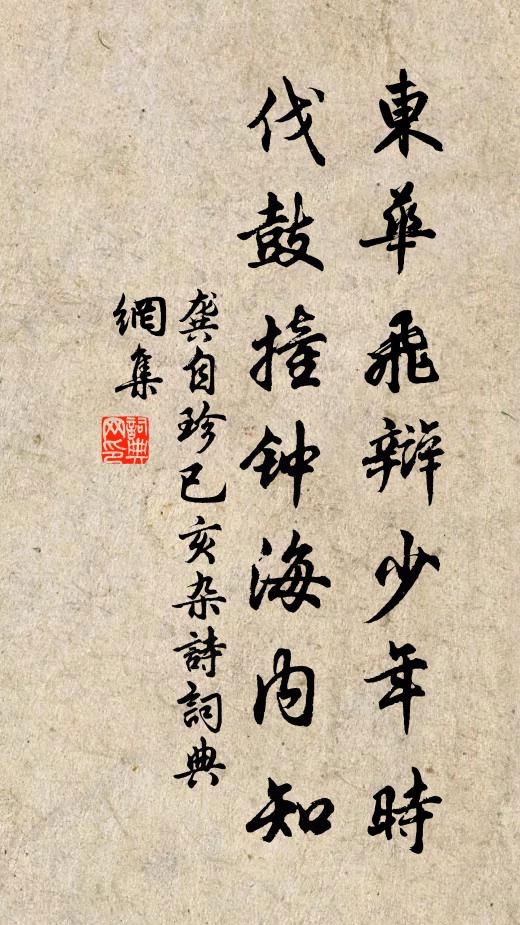 東華飛辯少年時
伐鼓撞钟海内知
龚自珍己亥杂詩詞典
網集
詞典
网印